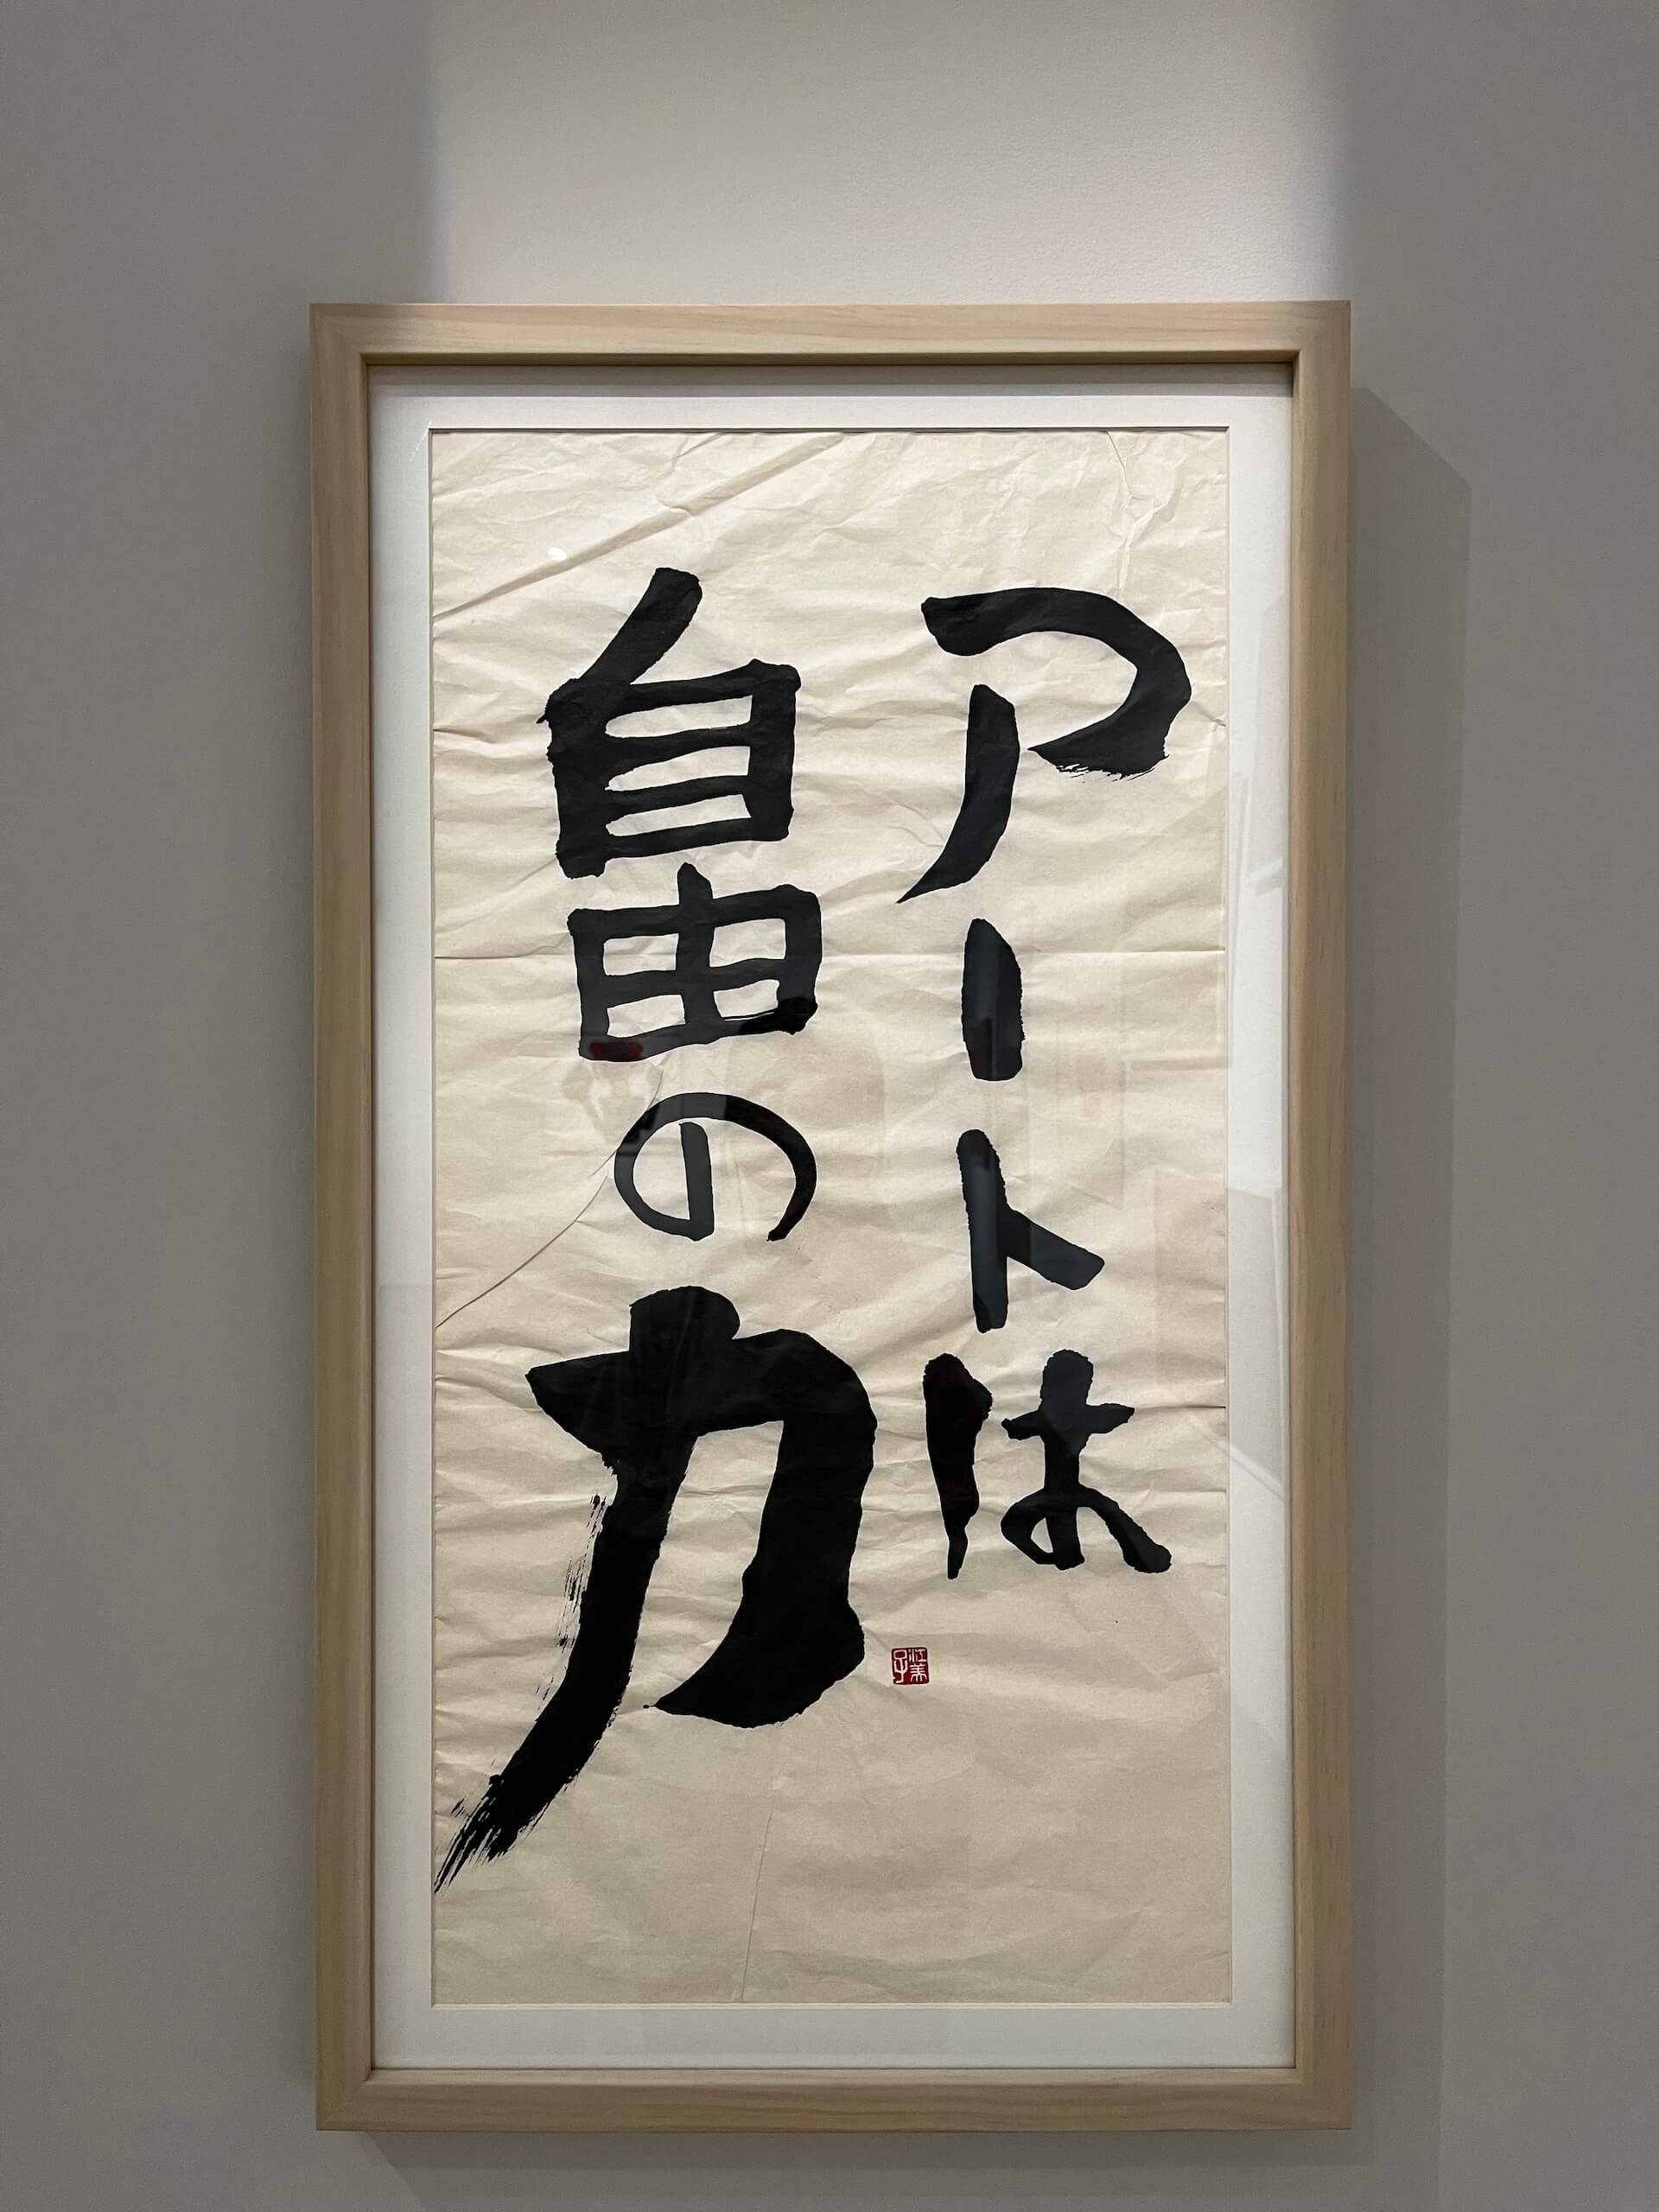 アートは
自由の力